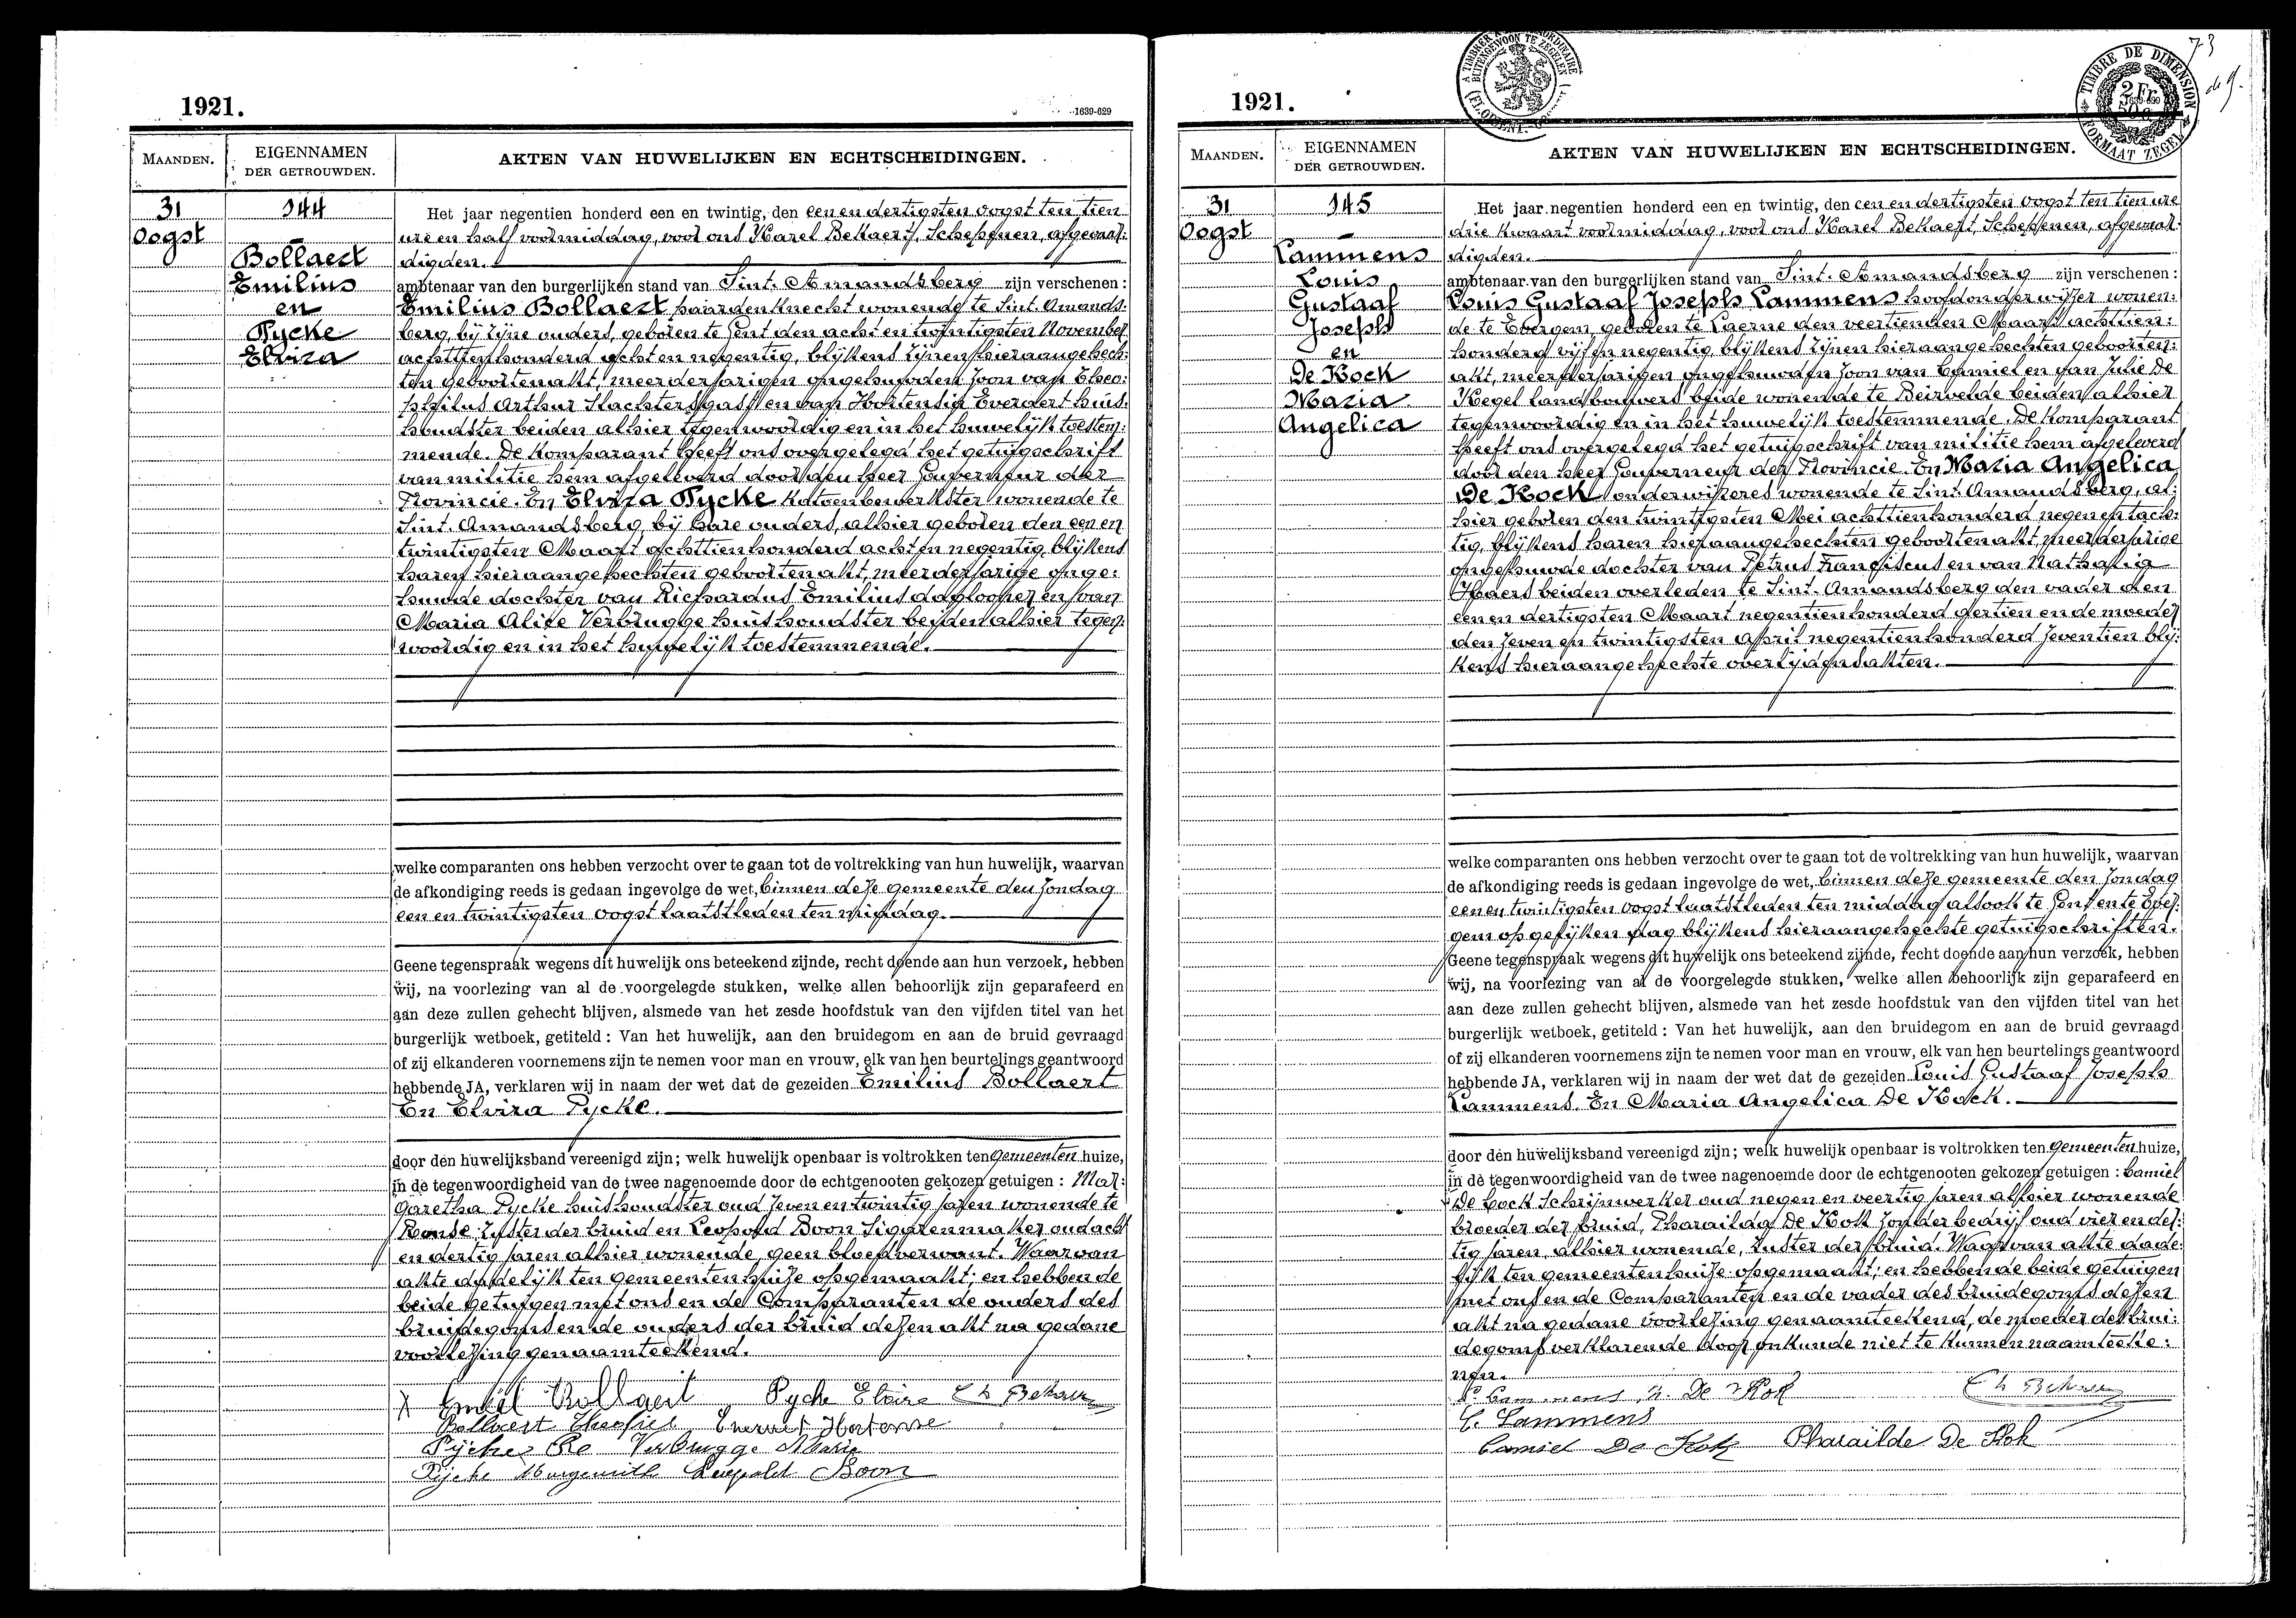 1921.
1639-629
MAANDEN.
EIGENNAMEN
DER GETROUWDEN.
AKTEN VAN HUWELIJKEN EN ECHTSCHEIDINGEN.
31
Oogst
144
Bollaert
Emilius
en
Pycke
Elvira
Het jaar negentien honderd een en twintig, den een en dertigsten oogst ten tien
ure en half voormiddag, voor ons Karel Bekaert, Schepenen, afgevaar:
digden.
ambtenaar van den burgerlijken stand van Sint. Amandsberg zijn verschenen :
Emilius Bollaert, paardenknecht wonende te Sint. Amands:
berg, bij zijne ouders, geboren te Gent den acht en twintigsten November
achttienhonderd acht en negentig, blijkens zijnen hieraangehech:
ten geboortenakt, meerderjarigen ongehuwden zoon van Theo:
philus Arthur Slachtersgast en van Hortensia Everaert huis:
houdster beiden alhier tegenwoordig en in het huwelijk toestem:
mende. De Komparant heeft ons overgelegd het getuigschrift
van militie hem afgeleverd door den heer Gouverneur der
Provincie. En Elvira Pycke Katoenbewerkster wonende te
Sint. Amandsberg, bij hare ouders, alhier geboren den een en
twintigsten Maart achttienhonderd acht en negentig, blijkens
haren hieraangehechten geboortenakt, meerderjarige onge:
huwde dochter van Richardus Emilius daglooner en van
Maria Alice Verbrugge huishoudster beiden alhier tegen:
woordig en in het huwelijk toestemmende.
welke comparanten ons hebben verzocht over te gaan tot de voltrekking van hun huwelijk, waarvan
de afkondiging reeds is gedaan ingevolge de wet, binnen deze gemeente den zondag
een en twintigsten oogst laatstleden ten middag.
Geene tegenspraak wegens dit huwelijk ons beteekend zijnde, recht doende aan hun verzoek, hebben
wij, na voorlezing van al de voorgelegde stukken, welke allen behoorlijk zijn geparafeerd en
aan deze zullen gehecht blijven, alsmede van het zesde hoofdstuk van den vijfden titel van het
burgerlijk wetboek, getiteld : Van het huwelijk, aan den bruidegom en aan de bruid gevraagd
of zij elkanderen voornemens zijn te nemen voor man en vrouw, elk van hen beurtelings geantwoord
hebbende JA, verklaren wij in naam der wet dat de gezeiden Emilius Bollaert
En Elvira Pycke.
door den huwelijksband vereenigd zijn; welk huwelijk openbaar is voltrokken ten gemeenten huize,
in de tegenwoordigheid van de twee nagenoemde door de echtgenooten gekozen getuigen : Mar:
garetha Pycke huishoudster oud zeven en twintig jaren wonende te
Ronse, zuster der bruid en Leopold Boon Sigarenmaker oud acht
en dertig jaren alhier wonende, geen bloedverwant. Waarvan
akte dadelijk ten gemeentenhuize opgemaakt; en hebben de
beide getuigen met ons en de Comparanten de ouders des
bruidegoms en de ouders der bruid dezen akt na gedane
voorlezing genaamteekend.
Emiel Bollaert Pycke Elvire Ch Bekaert
Bollaert Theofiel Everaet Hortense
Pycke Verbrugge Marie
Pycke Leopold Boon
1921.
A TIMBRER A L'EXTRAORDINAIRE
BUITENGEWOON TE ZEGELEN
TIMBRE DE DIMENSION
2 Fr.
FORMAAT ZEGEL
73
MAANDEN.
EIGENNAMEN
DER GETROUWDEN.
AKTEN VAN HUWELIJKEN EN ECHTSCHEIDINGEN.
31
Oogst
145
Lammens
Louis
Gustaaf
Joseph
en
De Kock
Maria
Angelica
Het jaar negentien honderd een en twintig, den een en dertigsten oogst ten tien ure
drie kwaart voormiddag, voor ons Karel Bekaert, Schepenen, afgevaar:
digden.
ambtenaar van den burgerlijken stand van Sint. Amandsberg zijn verschenen :
Louis Gustaaf Joseph Lammens hoofdonderwijzer wonen:
de te Evergem, geboren te Laerne den veertienden Maart achttien:
honderd vijf en negentig, blijkens zijnen hieraangehechten geboorten:
akt, meerderjarigen ongehuwden zoon van Camiel en van Julie De
Kegel landbouwers beide wonende te Beirvelde beiden alhier
tegenwoordig en in het huwelijk toestemmende. De Komparant
heeft ons overgelegd het getuigschrift van militie hem afgeleverd
door den heer Gouverneur der Provincie. En Maria Angelica
De Kock onderwijzeres wonende te Sint. Amandsberg, al:
hier geboren den twintigsten Mei achttienhonderd negen en tach:
tig, blijkens haren hieraangehechten geboortenakt, meerderjarige
ongehuwde dochter van Petrus Franciscus en van Nathalia
Haers beiden overleden te Sint. Amandsberg den vader den
een en dertigsten Maart negentienhonderd dertien en de moeder
den zeven en twintigsten April negentienhonderd zeventien blij:
kens hieraangehechte overlijdensakten.
welke comparanten ons hebben verzocht over te gaan tot de voltrekking van hun huwelijk, waarvan
de afkondiging reeds is gedaan ingevolge de wet, binnen deze gemeente den zondag
een en twintigsten oogst laatstleden ten middag alsook te Gent en te Ever:
gem op gelijken dag blijkens hieraangehechte getuigschriften.
Geene tegenspraak wegens dit huwelijk ons beteekend zijnde, recht doende aan hun verzoek, hebben
wij, na voorlezing van al de voorgelegde stukken, welke allen behoorlijk zijn geparafeerd en
aan deze zullen gehecht blijven, alsmede van het zesde hoofdstuk van den vijfden titel van het
burgerlijk wetboek, getiteld : Van het huwelijk, aan den bruidegom en aan de bruid gevraagd
of zij elkanderen voornemens zijn te nemen voor man en vrouw, elk van hen beurtelings geantwoord
hebbende JA, verklaren wij in naam der wet dat de gezeiden Louis Gustaaf Joseph
Lammens. En Maria Angelica De Kock.
door den huwelijksband vereenigd zijn; welk huwelijk openbaar is voltrokken ten gemeenten huize,
in de tegenwoordigheid van de twee nagenoemde door de echtgenooten gekozen getuigen : Camiel
De Cock Schrijnwerker oud negen en veertig jaren alhier wonende
broeder der bruid, Pharailda De Kok zonder bedrijf oud vier en der:
tig jaren, alhier wonende, zuster der bruid. Waarvan akte dade:
lijk ten gemeentenhuize opgemaakt; en hebben de beide getuigen
met ons en de Comparanten en de vader des bruidegoms dezen
akt na gedane voorlezing genaamteekend, de moeder des brui:
degoms verklarende door onkunde niet te kunnen naamteeke:
nen.
Lammens De Kok Ch Bekaert
C. Lammens
Camiel De Kok Pharaïlde De Kok